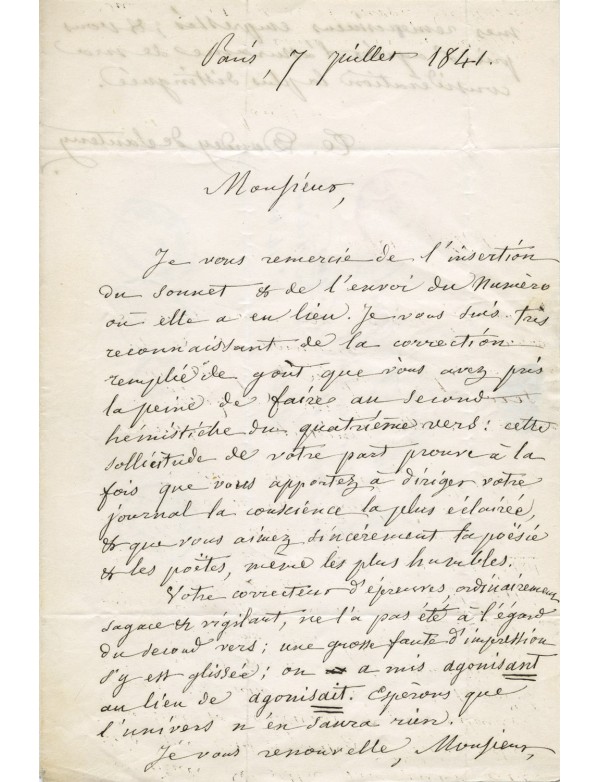 Paris, 7 juillet 1841.
Monsieur,
Je vous remercie de l'insertion
du sonnet & de l'envoi du Numèro
où elle a eu lieu. Je vous suis très
reconnaissant de la correction
remplie de goût que vous avez pris
la peine de faire au second
hémistiche du quatrième vers : cette
sollicitude de votre part prouve à la
fois que vous apportez à diriger votre
journal la conscience la plus éclairée,
& que vous aimez sincèrement la poësie
& les poëtes, même les plus humbles.
Votre correcteur d'épreuves, ordinairement
sagace & vigilant, ne l'a pas été à l'égard
du second vers ; une grosse faute d'impression
s'y est glissée ; on a mis agonisant
au lieu de agonisait. Espérons que
l'univers n'en saura rien.
Je vous renouvelle, Monsieur,